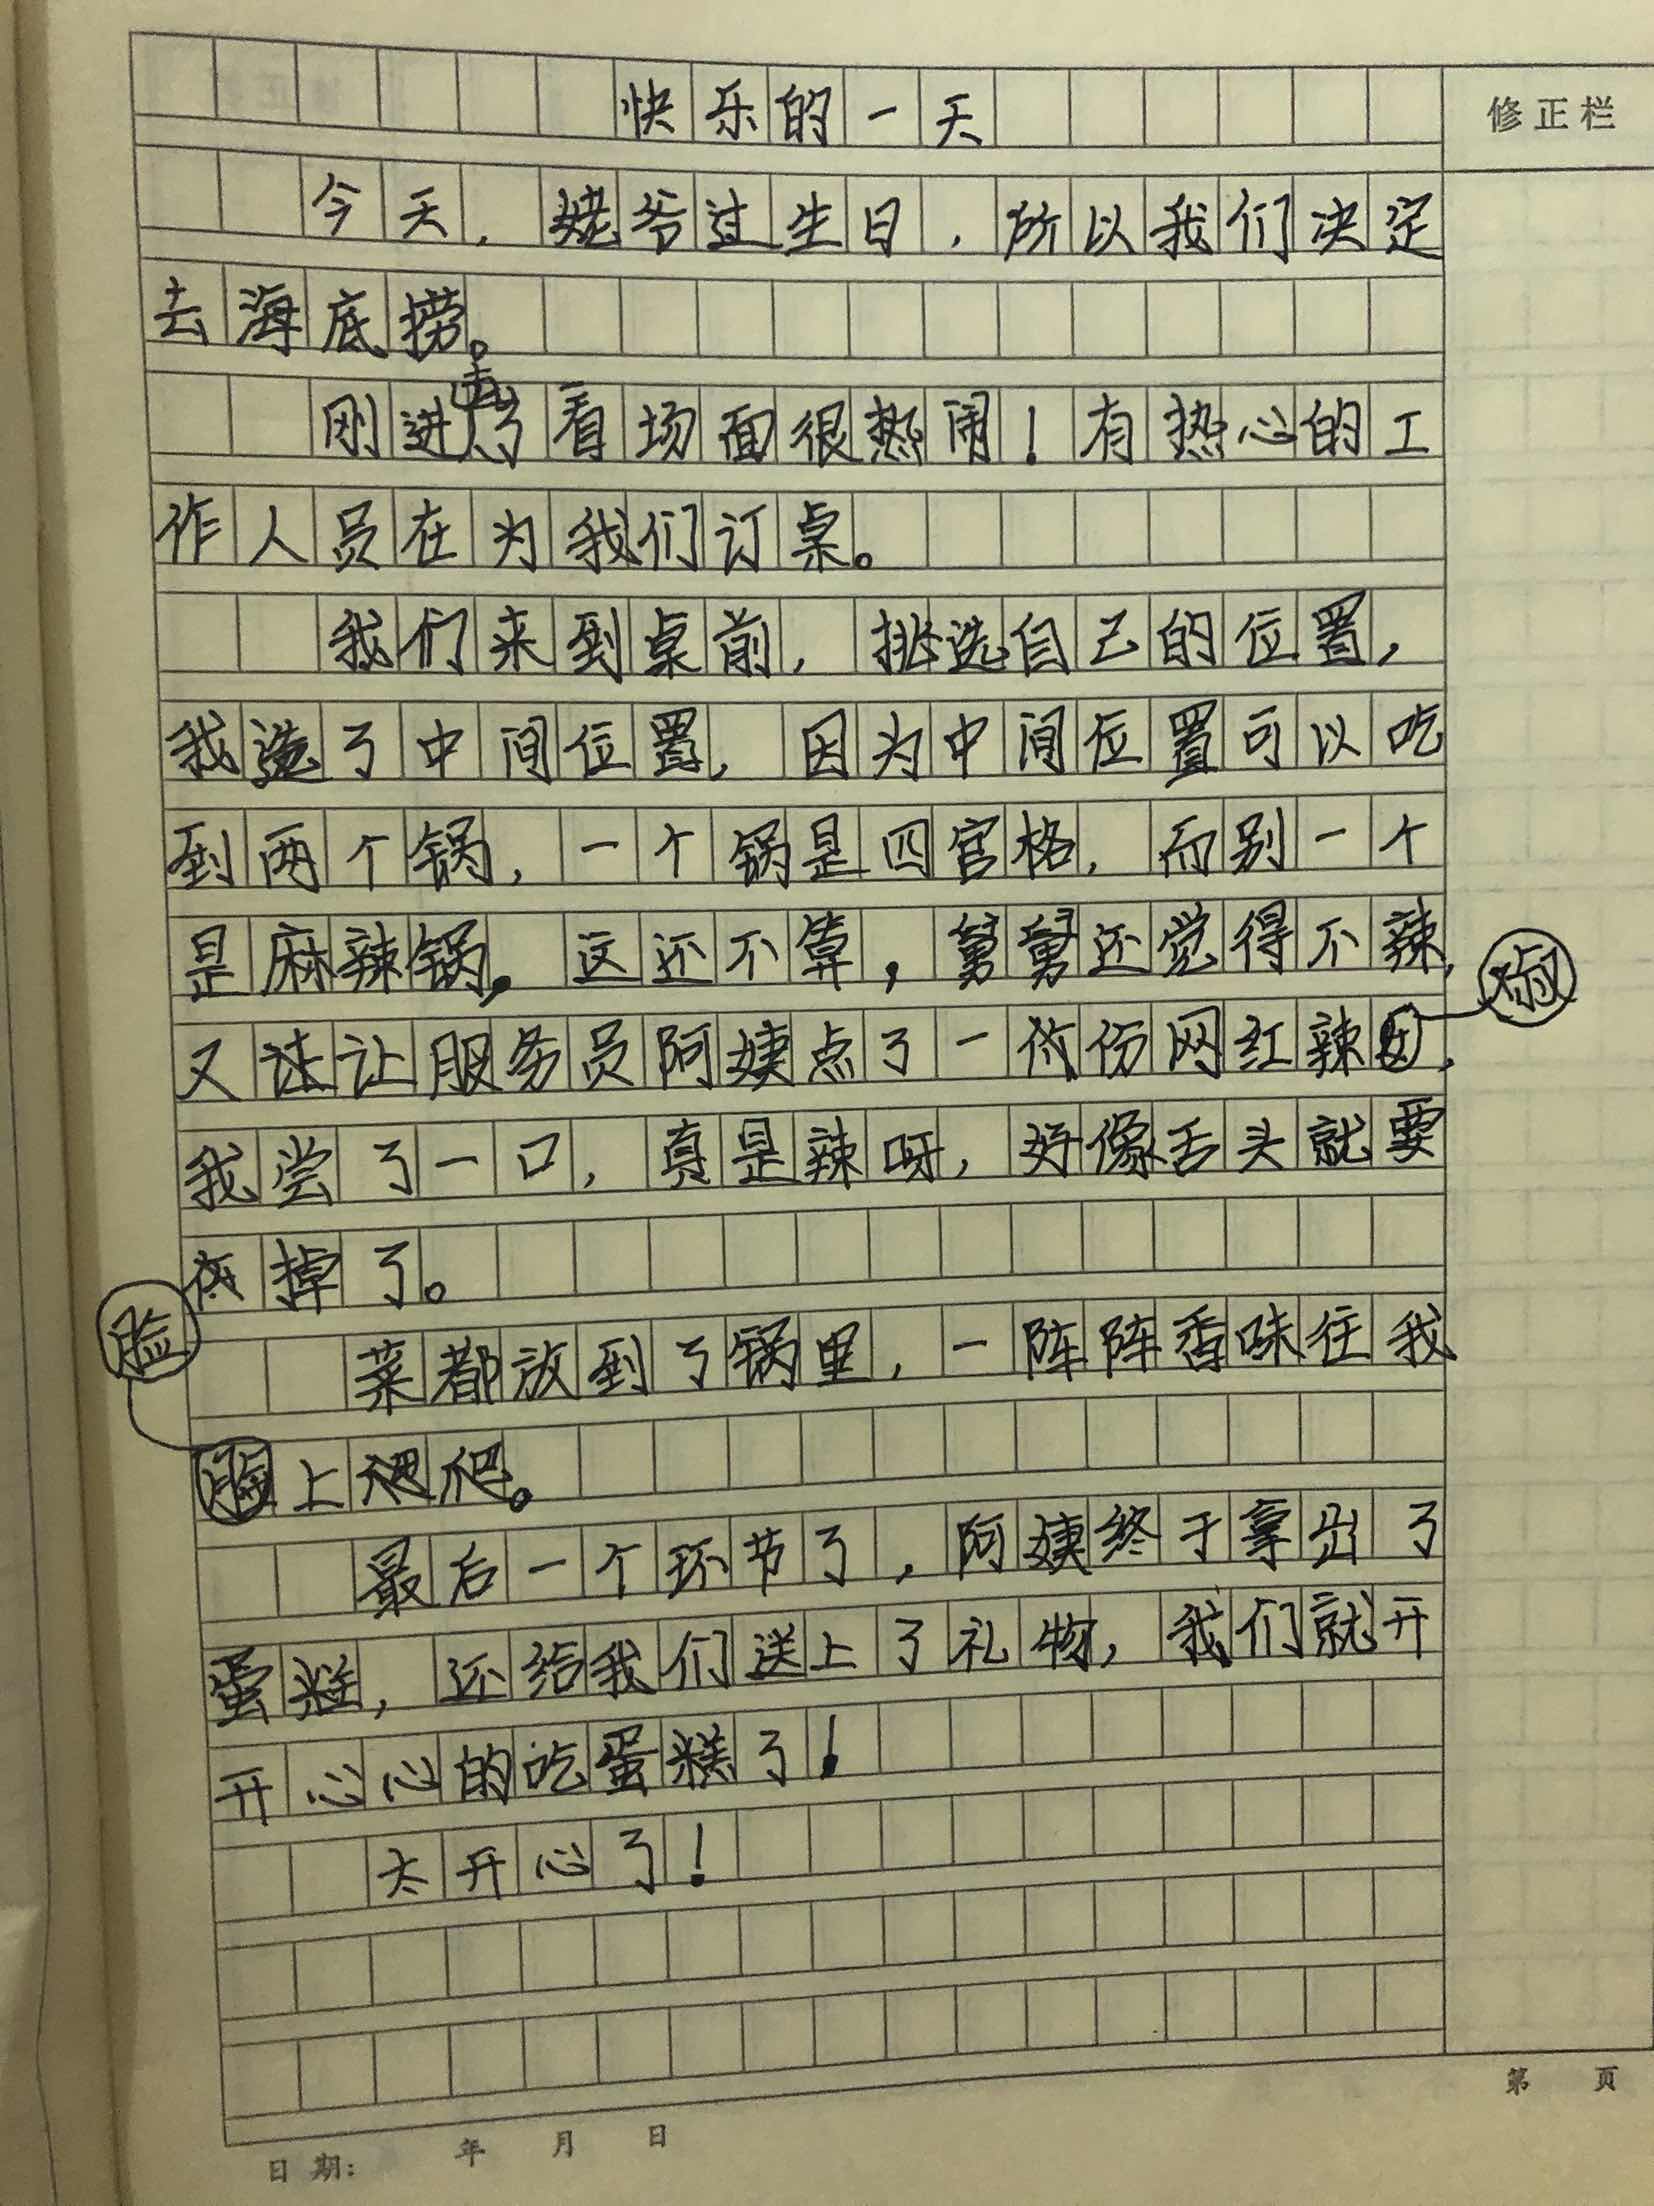 快乐的一天
修正栏
今天，姥爷过生日，所以我们决定
去海底捞。
刚进了看场面很热闹！有热心的工
作人员在为我们订桌。
我们来到桌前，挑选自己的位置，
我选了中间位置，因为中间位置可以吃
到两个锅，一个锅是四宫格，而别一个
是麻辣锅。这还不算，舅舅还觉得不辣，
又让服务员阿姨点了一份网红辣椒，
我尝了一口，真是辣呀，好像舌头就要
掉了。
脸
菜都放到了锅里，一阵阵香味往我
脸上爬。
最后一个环节了，阿姨终于拿出了
蛋糕，还给我们送上了礼物，我们就开
开心心的吃蛋糕了！
太开心了！
第 页
日期： 年 月 日